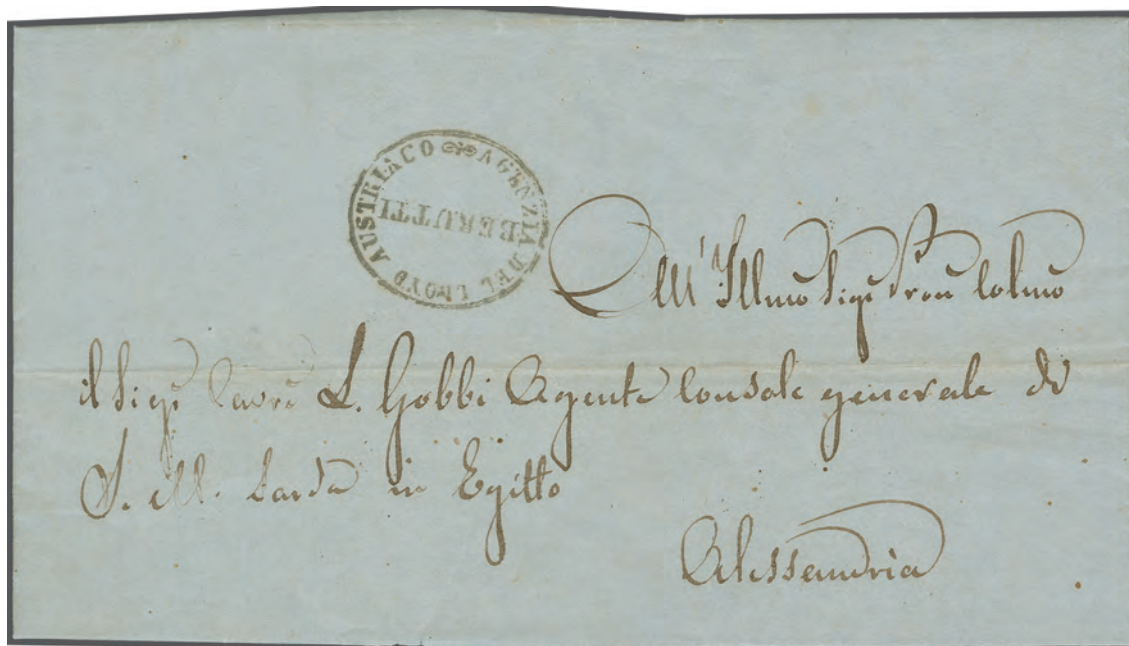 AGENZIA DEL LLOYD AUSTRIACO
BERUTTI
All' Illmo Sigr Pron Colmo
il Sigr Cavre L. Gobbi Agente Console generale di
S. M. Sarda in Egitto
Alessandria